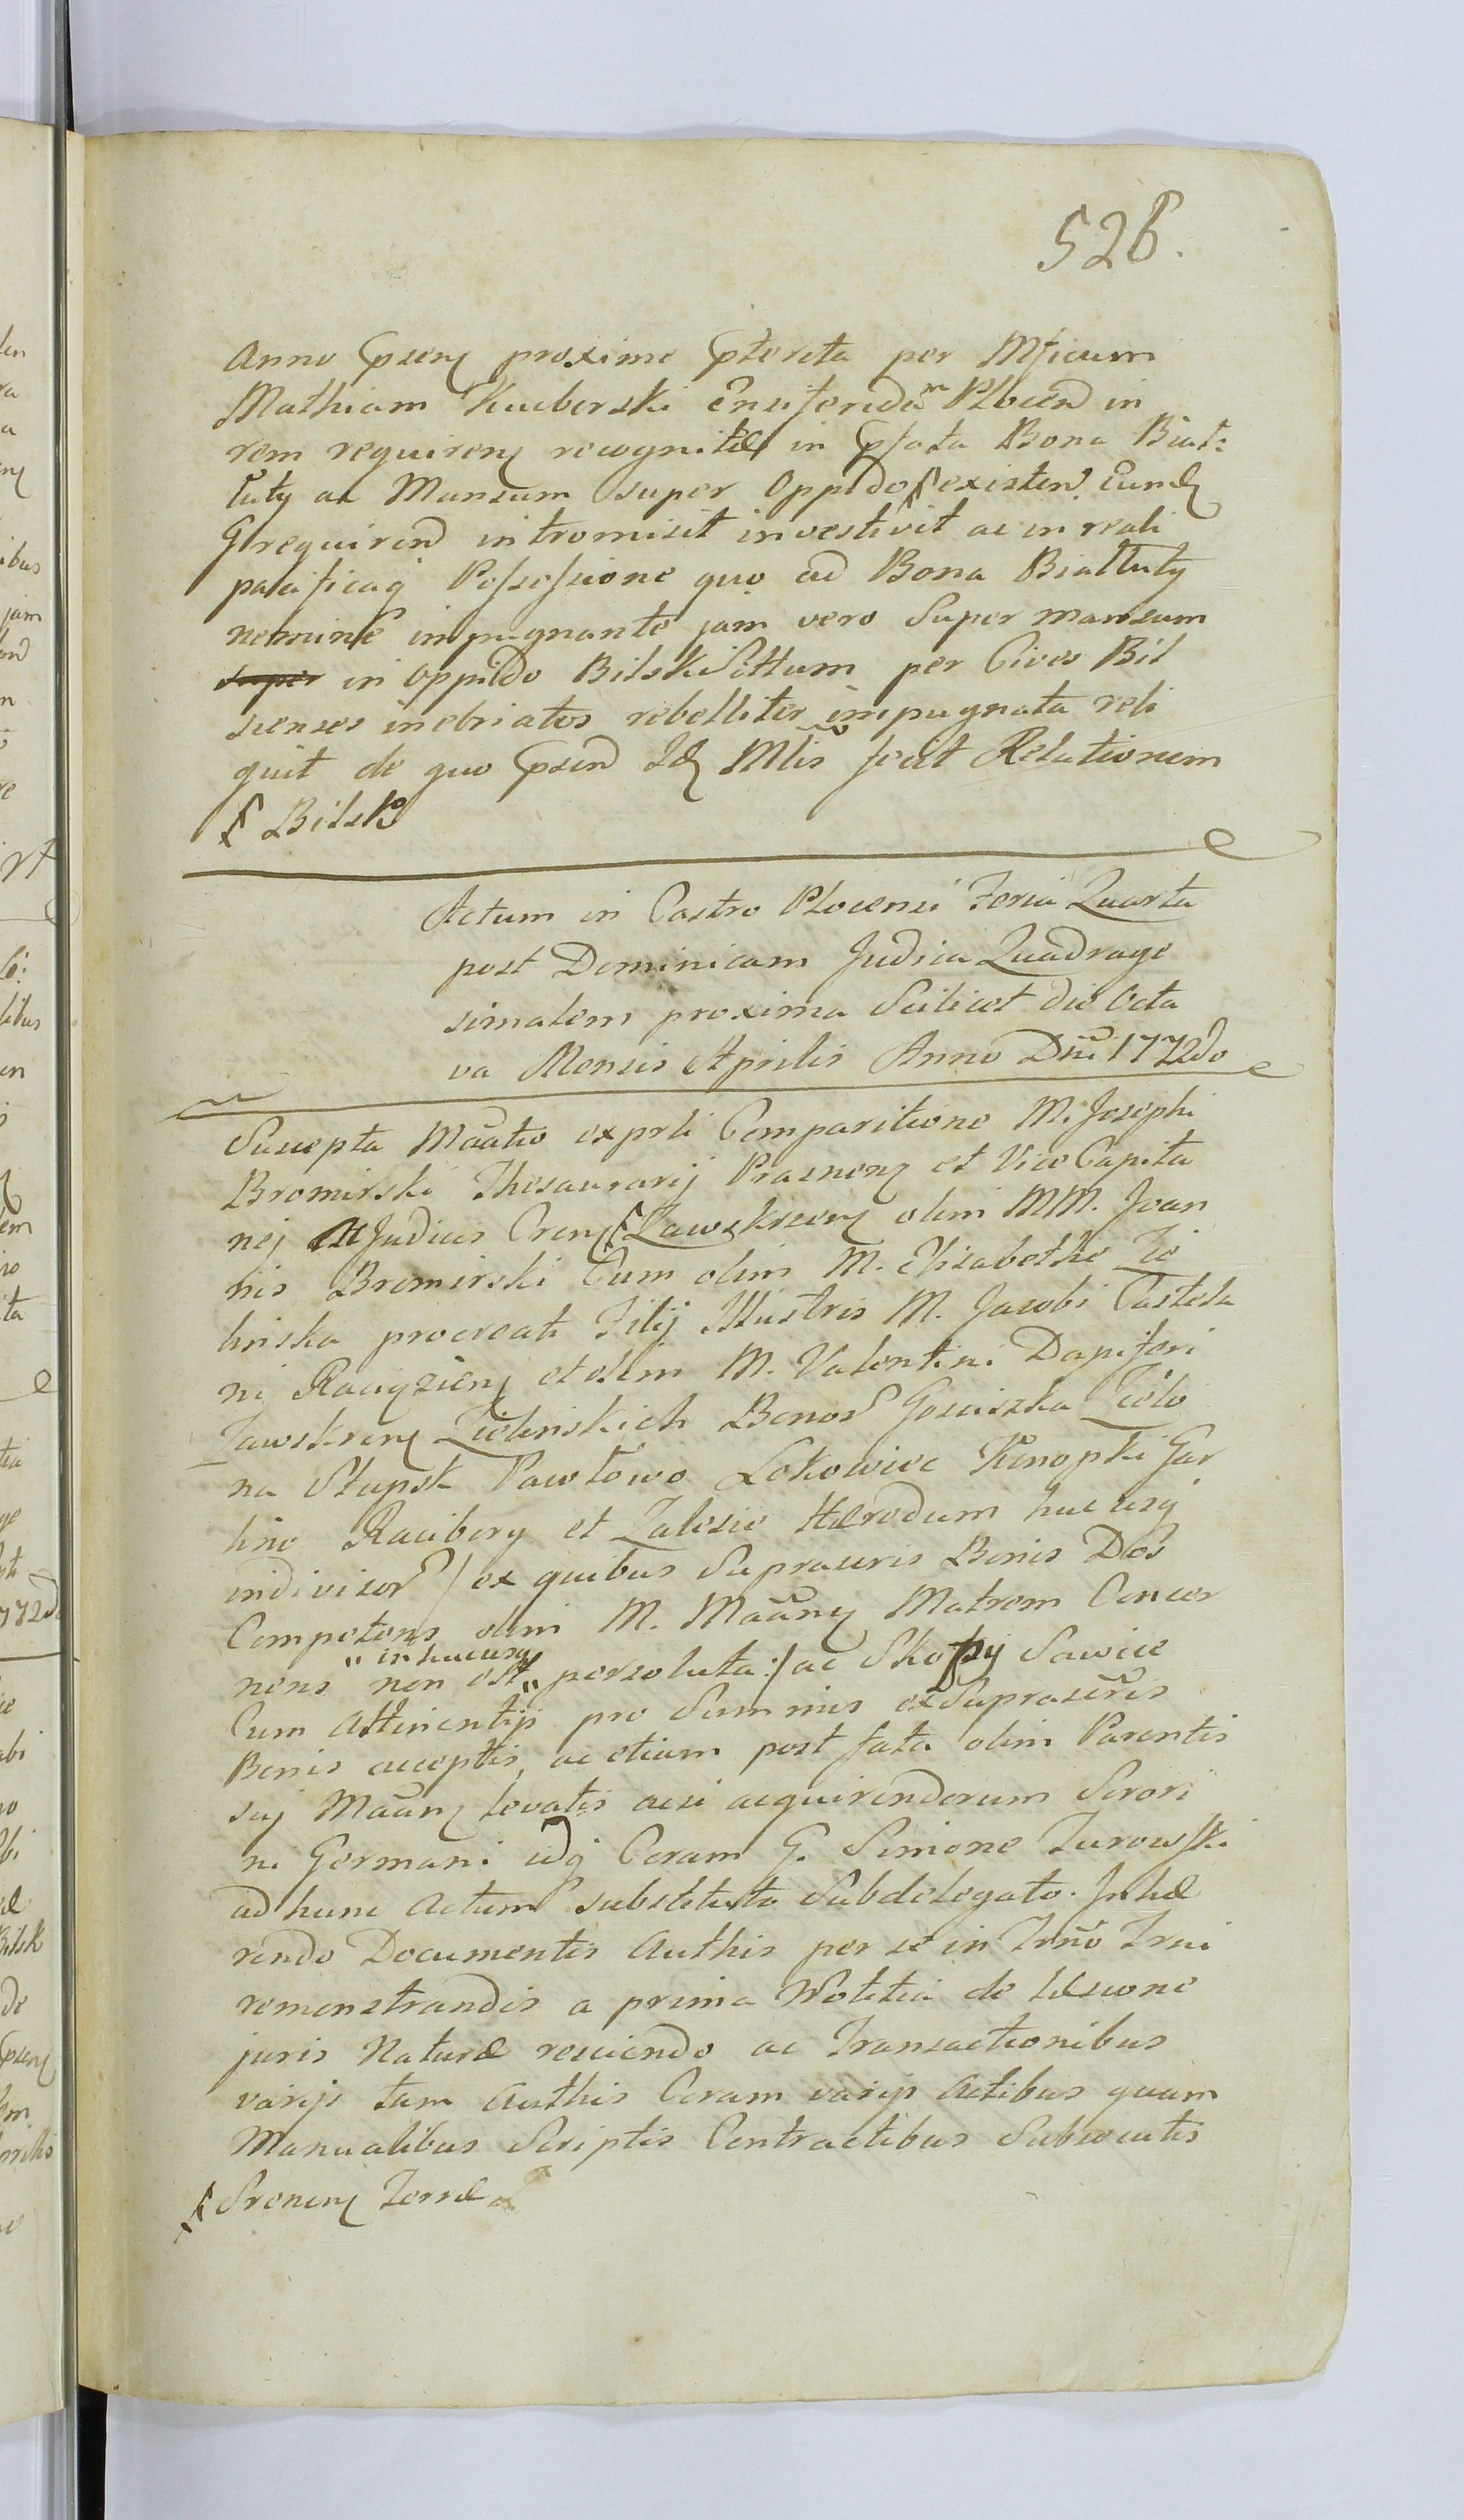 526.
Anno Prsens proxime Prterita per Mficum
Mathiam Kuberski Ensiferidam Plocens in
rem requirens recognitæ in Prfata Bona Biał:
łuty ac Mansum super Oppido existen. Eund
Grequirend intromisit investivit ac in reali
pacificaq Possessione quo ad Bona Białłuty
nemine impugnante jam vero Super mansum
super in Oppido Bilski Sittum per Cives Bil
scenses inebriatos rebelliter impugnata reli
quit de quo Prsens Id Mlis fecit Relationem
Bilsko
Actum in Castro Plocensi Feria Quarta
post Dominicam Judica Quadrage
simalem proxima Scilicet die Octa
va Mensis Aprilis Anno Dni 1772do
Suscepta Mãatio ex prti Comparitione M. Josephi
Bromirski Thesaurarij Prasnens et Vice Capita
nej et Judicis Crens Zawskrzens olim MM. Joan
nis Bromirski Cum olim M. Elisabethe Zie
linska procreati Filij Illustris M. Jacobi Castela
ni Raciąziens et olim M. Valentini Dapiferi
Zawskrens Zielinskich Bonor Gosciszka Zielo
na Słupsk Pawłowo Lokowice Konopki Gar
lino Racibory et Zalesie Hæredum huc usq
indivisor / ex quibus Suprascris Bonis Dos
Competens olim M. Mããnq Matrem Concer
nens non est " in hucusq " persoluta :/ ac Skopy Sawice
Cum Attinentijs pro Summis ex Suprascris
Bonis acceptis, ac etiam post fata olim Parentis
suj Mãanq levatis acsi acquirendorum Sorori
ni Germani idq Coram G. Simone Zurowski
ad hunc Actum substituto Subdelegato. Inhæ
rendo Documentis Authis per se in Trño Trui
remonstrandis a prima Notitia de læsione
juris Naturæ resciendo ac Transactionibus
varijs tam Authis Coram varijs Actibus quam
Manualibus Scriptis Contractibus Subsecutis
Srenens Terræ